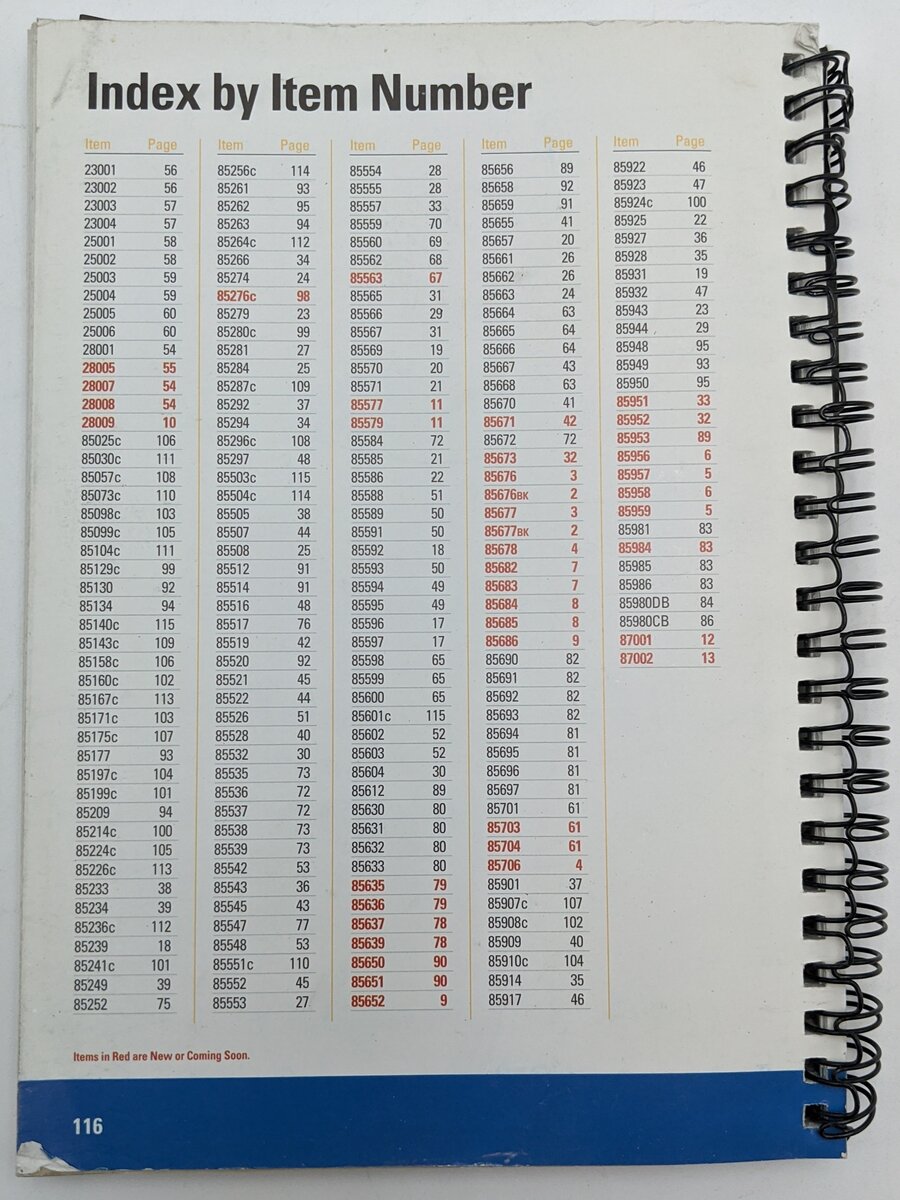 Index by Item Number
Item Page
23001 56
23002 56
23003 57
23004 57
25001 58
25002 58
25003 59
25004 59
25005 60
25006 60
28001 54
28005 55
28007 54
28008 54
28009 10
85025c 106
85030c 111
85057c 108
85073c 110
85098c 103
85099c 105
85104c 111
85129c 99
85130 92
85134 94
85140c 115
85143c 109
85158c 106
85160c 102
85167c 113
85171c 103
85175c 107
85177 93
85197c 104
85199c 101
85209 94
85214c 100
85224c 105
85226c 113
85233 38
85234 39
85236c 112
85239 18
85241c 101
85249 39
85252 75
Item Page
85256c 114
85261 93
85262 95
85263 94
85264c 112
85266 34
85274 24
85276c 98
85279 23
85280c 99
85281 27
85284 25
85287c 109
85292 37
85294 34
85296c 108
85297 48
85503c 115
85504c 114
85505 38
85507 44
85508 25
85512 91
85514 91
85516 48
85517 76
85519 42
85520 92
85521 45
85522 44
85526 51
85528 40
85532 30
85535 73
85536 72
85537 72
85538 73
85539 73
85542 53
85543 36
85545 43
85547 77
85548 53
85551c 110
85552 45
85553 27
Item Page
85554 28
85555 28
85557 33
85559 70
85560 69
85562 68
85563 67
85565 31
85566 29
85567 31
85569 19
85570 20
85571 21
85577 11
85579 11
85584 72
85585 21
85586 22
85588 51
85589 50
85591 50
85592 18
85593 50
85594 49
85595 49
85596 17
85597 17
85598 65
85599 65
85600 65
85601c 115
85602 52
85603 52
85604 30
85612 89
85630 80
85631 80
85632 80
85633 80
85635 79
85636 79
85637 78
85639 78
85650 90
85651 90
85652 9
Item Page
85656 89
85658 92
85659 91
85655 41
85657 20
85661 26
85662 26
85663 24
85664 63
85665 64
85666 64
85667 43
85668 63
85670 41
85671 42
85672 72
85673 32
85676 3
85676BK 2
85677 3
85677BK 2
85678 4
85682 7
85683 7
85684 8
85685 8
85686 9
85690 82
85691 82
85692 82
85693 82
85694 81
85695 81
85696 81
85697 81
85701 61
85703 61
85704 61
85706 4
85901 37
85907c 107
85908c 102
85909 40
85910c 104
85914 35
85917 46
Item Page
85922 46
85923 47
85924c 100
85925 22
85927 36
85928 35
85931 19
85932 47
85943 23
85944 29
85948 95
85949 93
85950 95
85951 33
85952 32
85953 89
85956 6
85957 5
85958 6
85959 5
85981 83
85984 83
85985 83
85986 83
85980DB 84
85980CB 86
87001 12
87002 13
Items in Red are New or Coming Soon.
116